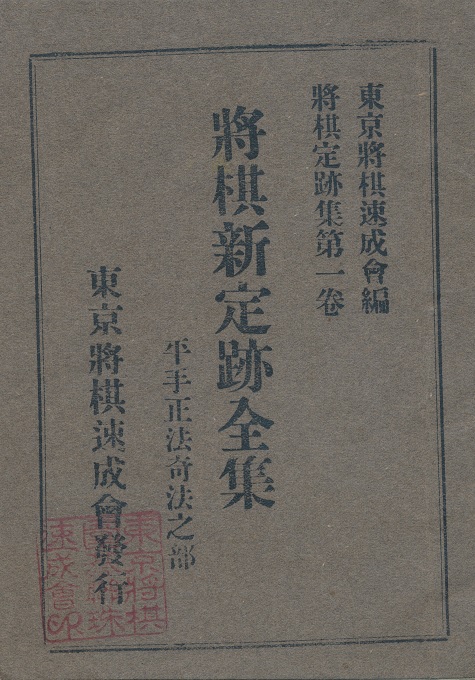 東京將棋速成會編
將棋定跡集第一卷
將棋新定跡全集
平手正法奇法之部
東京將棋速成會發行
東京將棋
速成會印